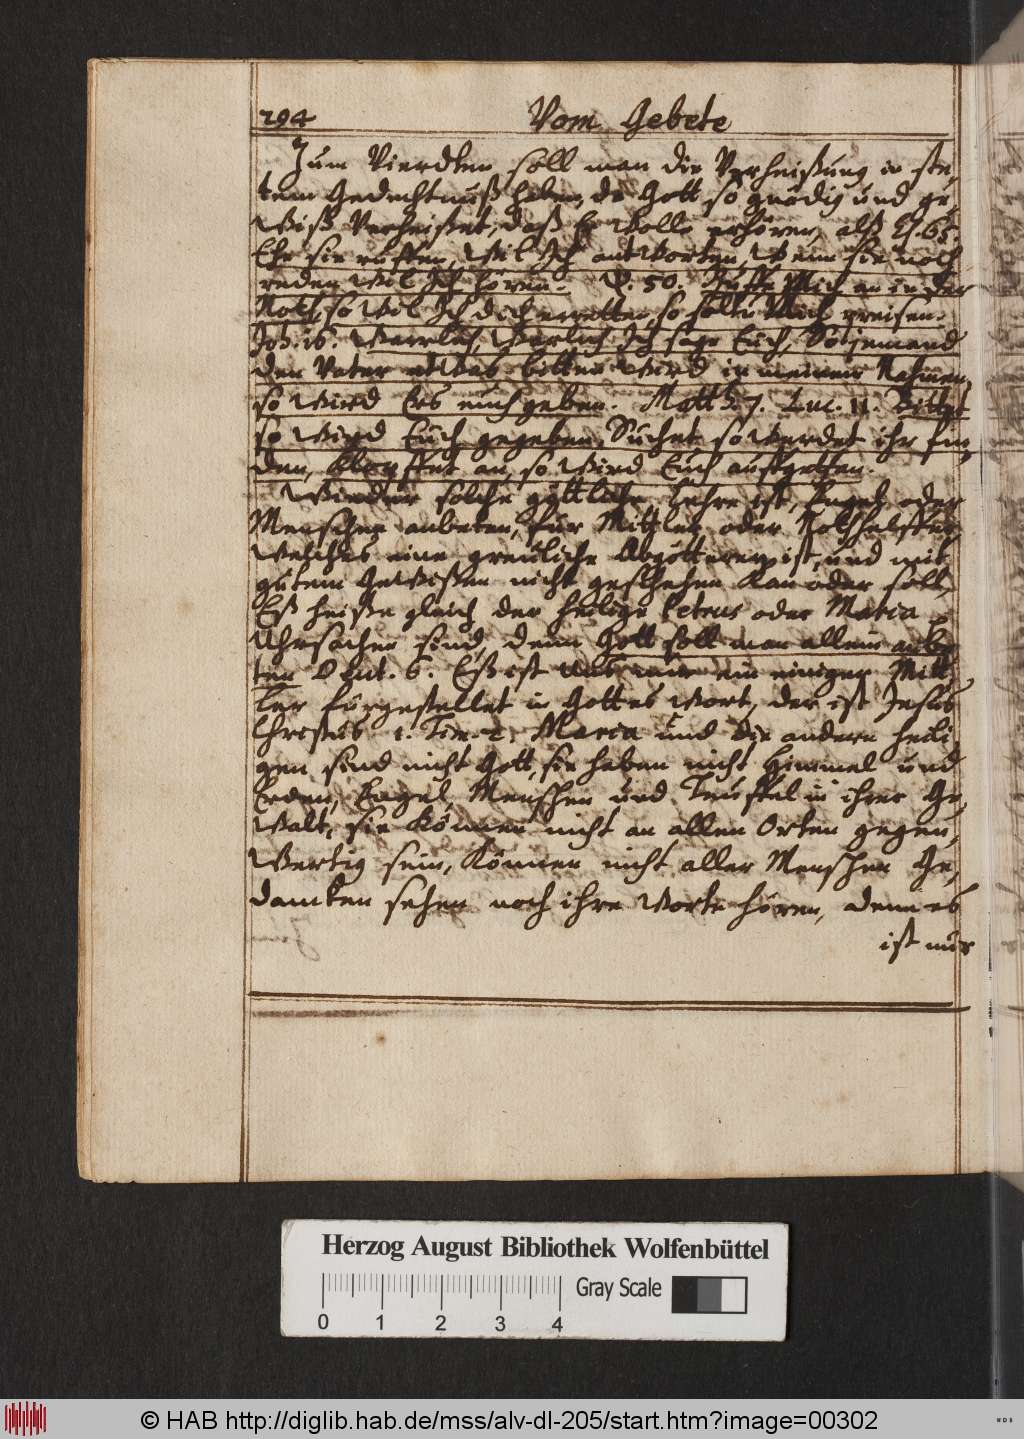 294 Vom Gebete
Zum Vierdten soll man die Verheißung in ste,
tem Gedechtnuß haben, da Gott so gnädig und ge,
wiß Verheißet, daß Er wolle erhören, alß Es. 65.
Ehe sie ruffen, wil Ich antworten, Wenn sie noch
reden wil Ich hören. P. 50. Ruffe Mich an in der
Noth, so wil Ich dich erretten, so soltu Mich preisen.
Joh. 16. Warrlich, Warlich Ich sage Euch, So jemand
den Vater etwas bitten wird in meinem Nahmen,
so wird Ers euch geben. Matth. 7. Luc. 11. Bittet
so wird Euch gegeben, Suchet so werdet ihr fin,
den, klopffet an, so wird Euch auffgethan.
Wieder solche göttliche Lehre ist, Engel oder
Menschen anbeten, für Mittler oder Nothhelffer
welches eine greüliche Abgötterey ist, und mit
gutem Gewißen nicht geschehen kan oder soll,
Eß heiße gleich der heilige Petrus oder Maria
Uhrsachen sind, denn Gott soll man allein anbe,
ten Deut. 6. Eß ist nur ein einiger Mitt,
ler fürgestellet in Gottes Wort, der ist Jesus
Christus 1. Tim. 2. Maria und die andern heili
gen sind nicht Gott, sie haben nicht Himmel und
Erden, Engel, Menschen und Teuffel in ihrer Ge,
walt, sie können nicht an allen Orten gegen,
wertig sein, können nicht aller Menschen Ge,
dancken sehen noch ihre Worte hören, denn es
ist nur
Herzog August Bibliothek Wolfenbüttel
Gray Scale
0 1 2 3 4
© HAB http://diglib.hab.de/mss/alv-dl-205/start.htm?image=00302